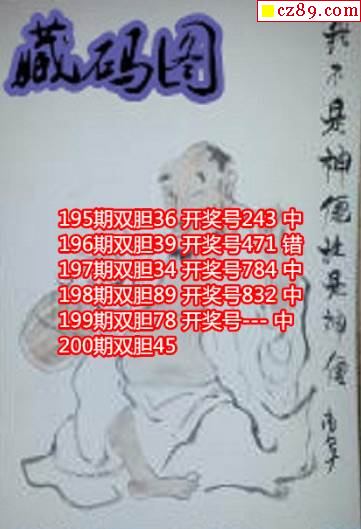 cz89.com
藏码图
195期双胆36 开奖号243 中
196期双胆39 开奖号471 错
197期双胆34 开奖号784 中
198期双胆89 开奖号832 中
199期双胆78 开奖号--- 中
200期双胆45
不是神 是神